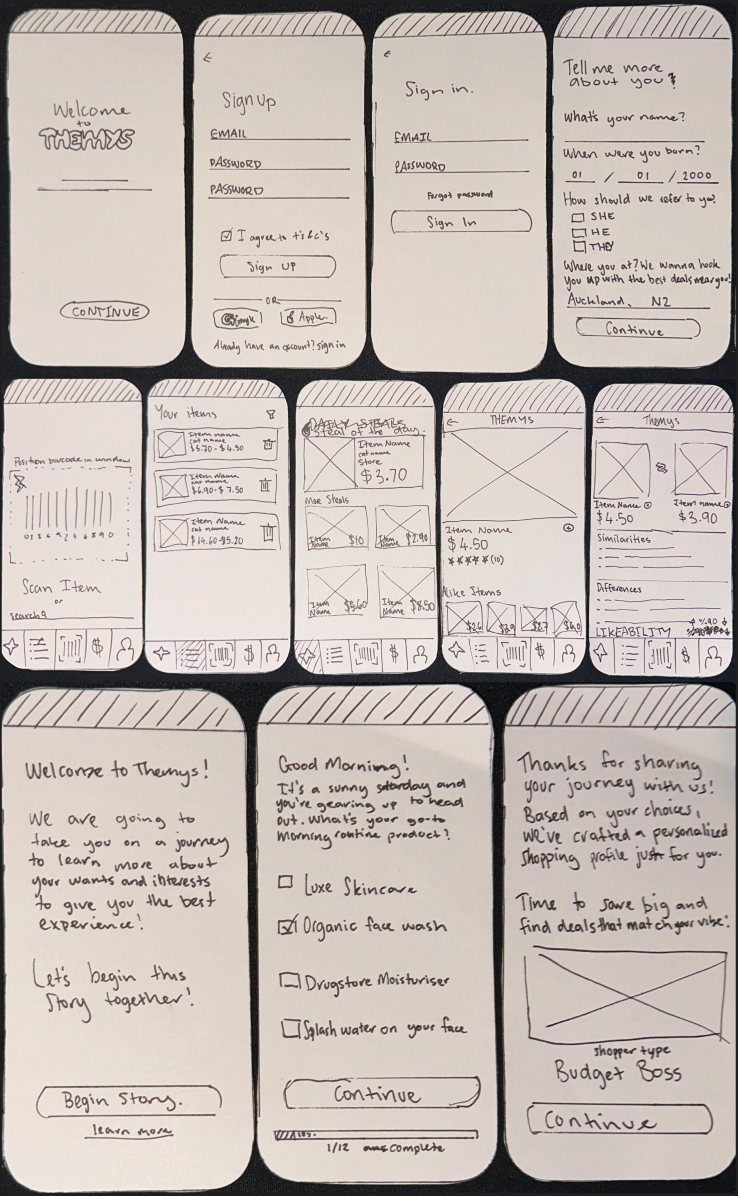 Welcome
to
THEMYS
CONTINUE
Sign Up
EMAIL
PASSWORD
PASSWORD
I agree to t's & c's
Sign UP
OR
Google
Apple.
Already have an account? sign in
Sign in.
EMAIL
PASSWORD
Forgot password
Sign In
Tell me more
about you?
What's your name?
When were you born?
01 / 01 / 2000
How should we refer to you?
SHE
HE
THEY
Where you at? We wanna hook
you up with the best deals near you!
Auckland, NZ
Continue
Position barcode in window
Scan Item
or
search
Your items
Item name
cat name
$5.70 - $4.50
Item Name
cat name
$6.90 - $7.50
Item Name
cat name
$14.60 - $5.20
DAILY STEALS
Steal of the day.
Item Name
cat name
Store
$3.70
More Steals
Item
Name
$10
Item
Name
$2.90
Item
Name
$5.60
Item
Name
$8.50
THEMYS
Item Name
$4.50
(10)
Alike Items
Themys
Item Name
$4.50
Item name
$3.90
Similarities
Differences
LIKEABILITY
Welcome to Themys!
We are going to
take you on a journey
to learn more about
your wants and interests
to give you the best
experience!
Let's begin this
Story together!
Begin Story.
learn more
Good Morning!
It's a sunny saturday and
you're gearing up to head
out. What's your go-to
morning routine product?
Luxe Skincare
Organic face wash
Drugstore Moisturiser
Splash water on your face
Continue
1/12 complete
Thanks for sharing
your journey with us!
Based on your choices,
we've crafted a personalized
shopping profile just for you.
Time to save big and
find deals that match your vibe!
shopper type
Budget Boss
Continue